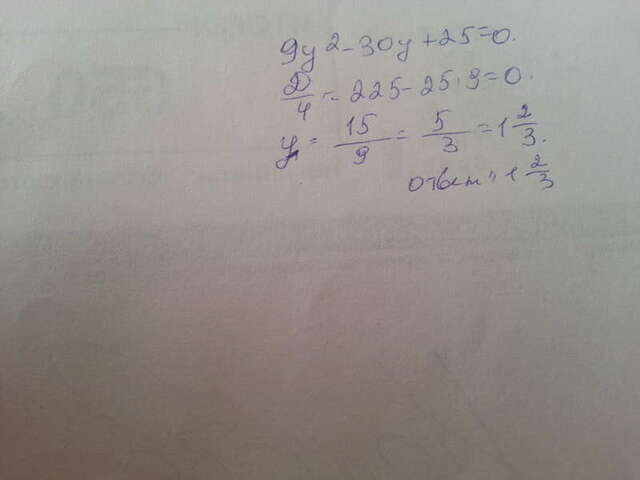 9y² - 30y + 25 = 0.
D/4 = 225 - 25·9 = 0.
y = 15/9 = 5/3 = 1 2/3.
ответ: 1 2/3